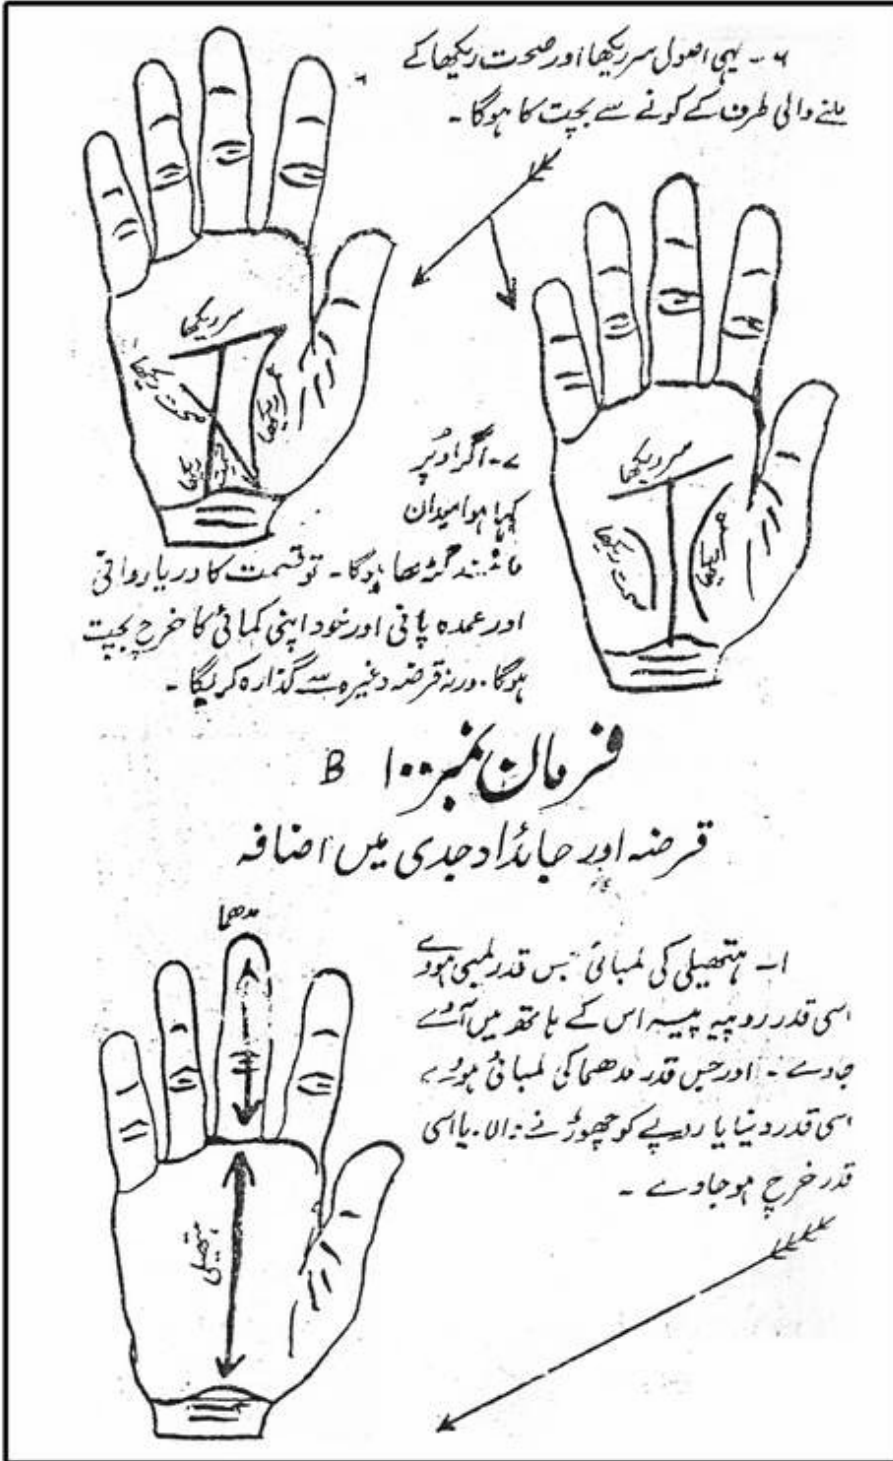 ۶ ۔ یہی اصول سر ریکھا اور صحت ریکھا کے
ملنے والی طرف کے کونے سے بچت کا ہوگا ۔
سر ریکھا
صحت ریکھا
عمر ریکھا
ریکھا
سر ریکھا
صحت ریکھا
عمر ریکھا
۷ ۔ اگر اوپر
کہا ہوا میدان
مانند گڑھا ہوگا ۔ تو قسمت کا دریا روانی
اور عمدہ پانی اور خود اپنی کمائی کا خرچ بچت
ہوگا ۔ ورنہ قرضہ وغیرہ سے گذارہ کریگا ۔
فرمان نمبر ۱۰۰ B
قرضہ اور جائداد جدی میں اضافہ
مدھما
۱ ۔ ہتھیلی کی لمبائی جس قدر لمبی ہووے
اسی قدر روپیہ پیسہ اس کے ہاتھ میں آوے
جاوے ۔ اور جس قدر مدھما کی لمبائی ہووے
اسی قدر دنیا یا روپے کو چھوڑنے والا ۔ یا اسی
قدر خرچ ہو جاوے ۔
ہتھیلی